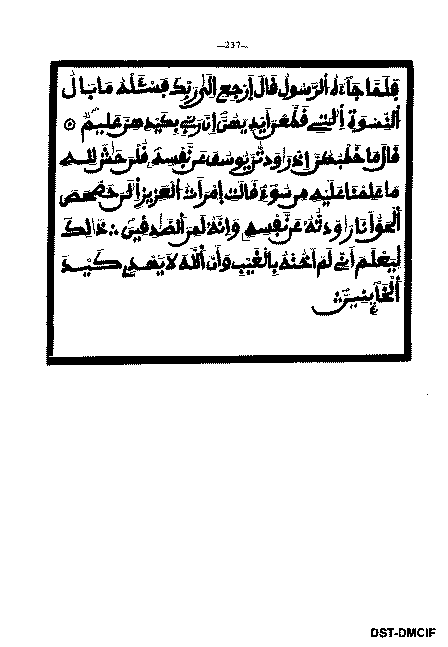 —237—
فلما جاءه الرسول قال ارجع الى ربك فسئله ما بال
النسوة التي قطعن ايديهن ان ربي بكيدهن عليم
قال ما خطبكن اذ راودتن يوسف عن نفسه قلن حش لله
ما علمنا عليه من سوء قالت امرأت العزيز الن حصحص
الحق أنا راودته عن نفسه وإنه لمن الصدقين ذالك
ليعلم أني لم أخنه بالغيب وأن الله لا يهدي كيد
الخاينين
DST-DMCIF